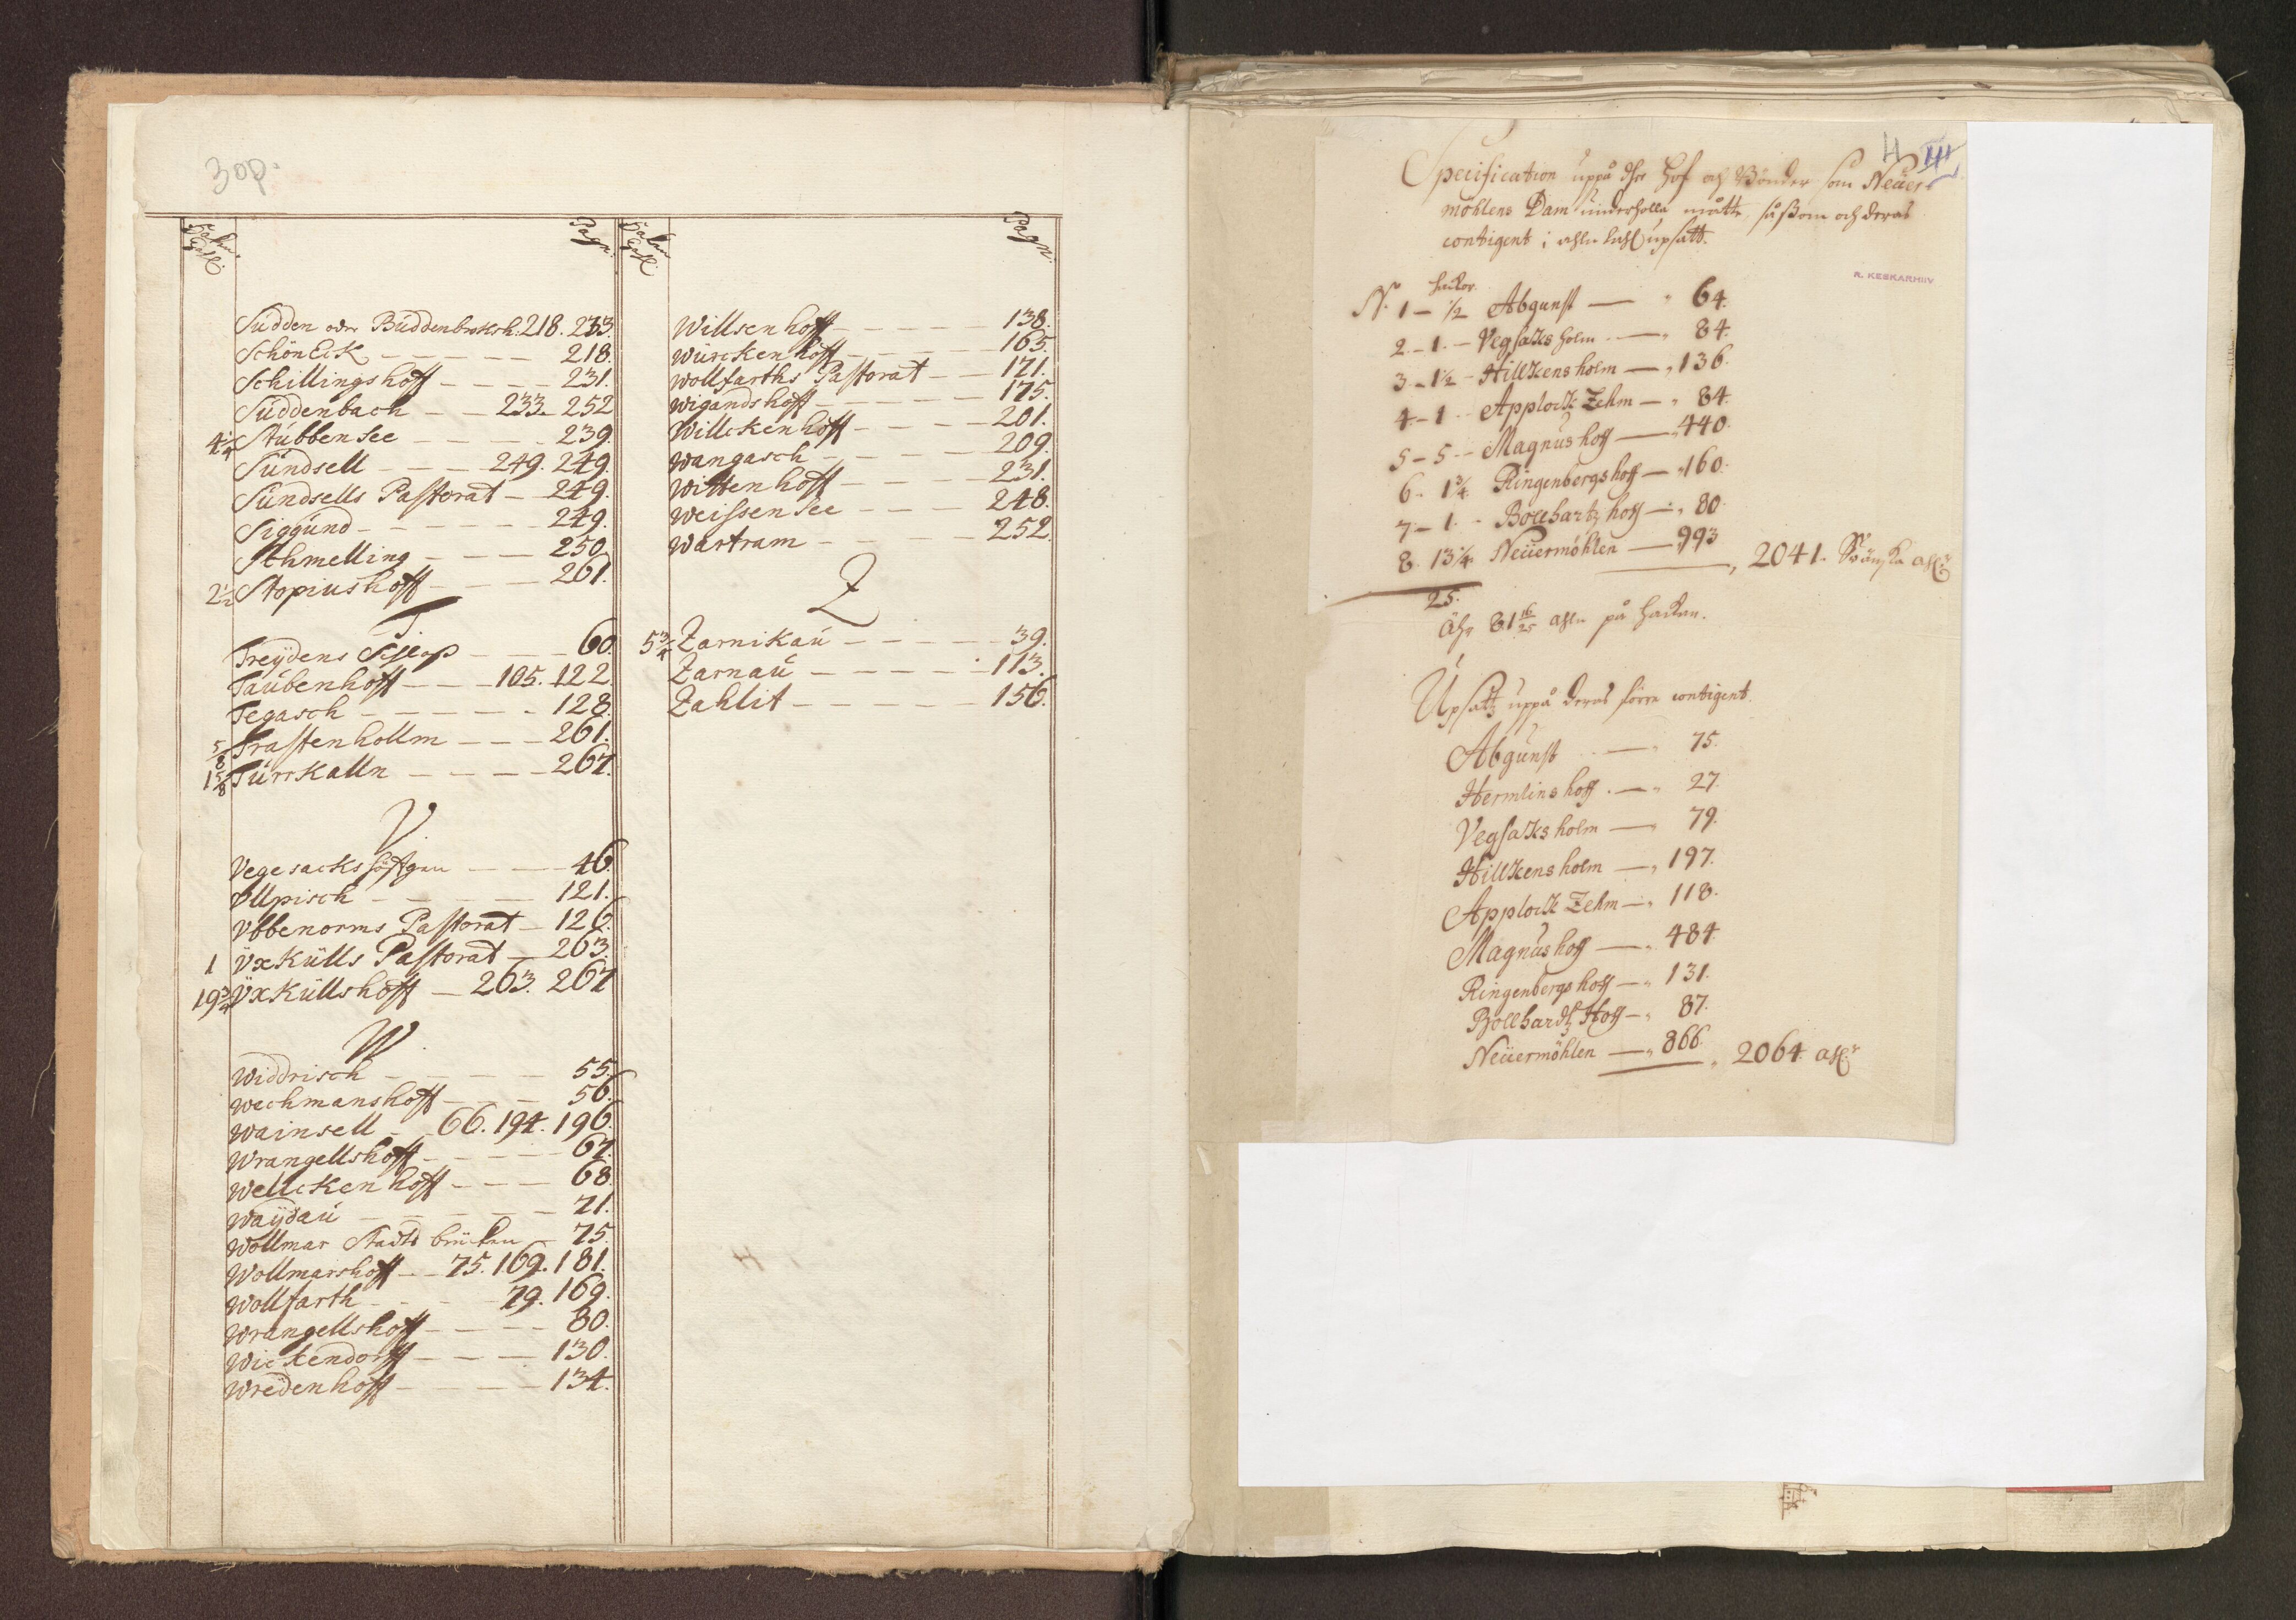 3 op.
Pagn:
Sudden oder Buddenbroksch. 218. 233
SchönEck 218.
Schillingshoff 231.
Suddenbach 233. 252
4¼ Stubbensee 239.
Sundsell 249. 249.
Sundsells Pastorat 249.
Siggund 249.
Schmelling 250.
2½ Stopiushoff 261.
T.
Treÿdens Schlos 60.
Taubenhoff 105. 122.
Tegasch 128.
5/8 Trastenhollm 261.
1 5/8 Türrkalln 267.
V.
Vegesacks höfgen 46.
Vllpisch 121.
Vbbenorms Pastorat 126.
1 Üxkülls Pastorat 263.
19¾ Üxküllshoff 263. 267
W.
Widdrisch 55.
Wechmanshoff 56.
Wainsell 66. 194. 196.
Wrangellshoff 67.
Wellcken hoff 68.
Waÿdau 71.
Wollmar Stadts brücken 75.
Wollmarshoff 75. 169. 181.
Wollfarth 79. 169.
Wrangellshoff 80.
Wickendorff 130.
Wredenhoff 134.
Pagn:
Willsenhoff 138.
Würckenhoff 165.
Wollfarths Pastorat 171.
Wigandshoff 175.
Willckenhoff 201.
Wangasch 209.
Wittenhoff 231.
Weissensee 248.
Wartram 252.
Z
5¾ Zarnikau 39.
Zarnau 113.
Zahlit 156.
4 III
Specification uppå dhe Hof och Bönder som Neüer
möhlens Dam underholla måtte, såsom och deras
contigent i ahln tahl upsatt.
R. KESKARHIIV
hacker.
N. 1 – ½ Abgunst — 64.
2. – 1. – Vegsacks holm — 84.
3 – 1½ – Hillkens holm — 136.
4 – 1 – Applock Zehm — 84.
5 – 5 – Magnus hoff — 440.
6. 1¾ Ringenbergs hoff — 160.
7 – 1. – Bollhartz hoff — 80.
8. 13¼ Neüermöhlen — 993 2041. Swänska ahl:r
25.
Ähr 81 16/25 ahln på hacken.
Upsatz uppå deras förre contigent.
Abgunst — 75.
Hermlins hoff — 27.
Vegsacks holm — 79.
Hillkens holm — 197.
Applock Zehm — 118.
Magnus hoff — 484.
Ringenbergs hoff — 131.
Bollhardtz Hoff — 87.
Neüermöhlen — 866. 2064 ahl:r